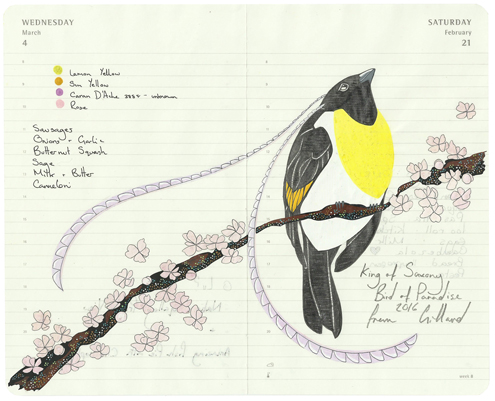 WEDNESDAY
March
4
Lemon Yellow
Sun Yellow
Caran D'Ache - unknown
Rose
Sausages
Onions + Garlic
Butternut Squash
Sage
Milk + Butter
Canneloni
SATURDAY
February
21
King of Saxony
Bird of Paradise
2016
Fran Giffard